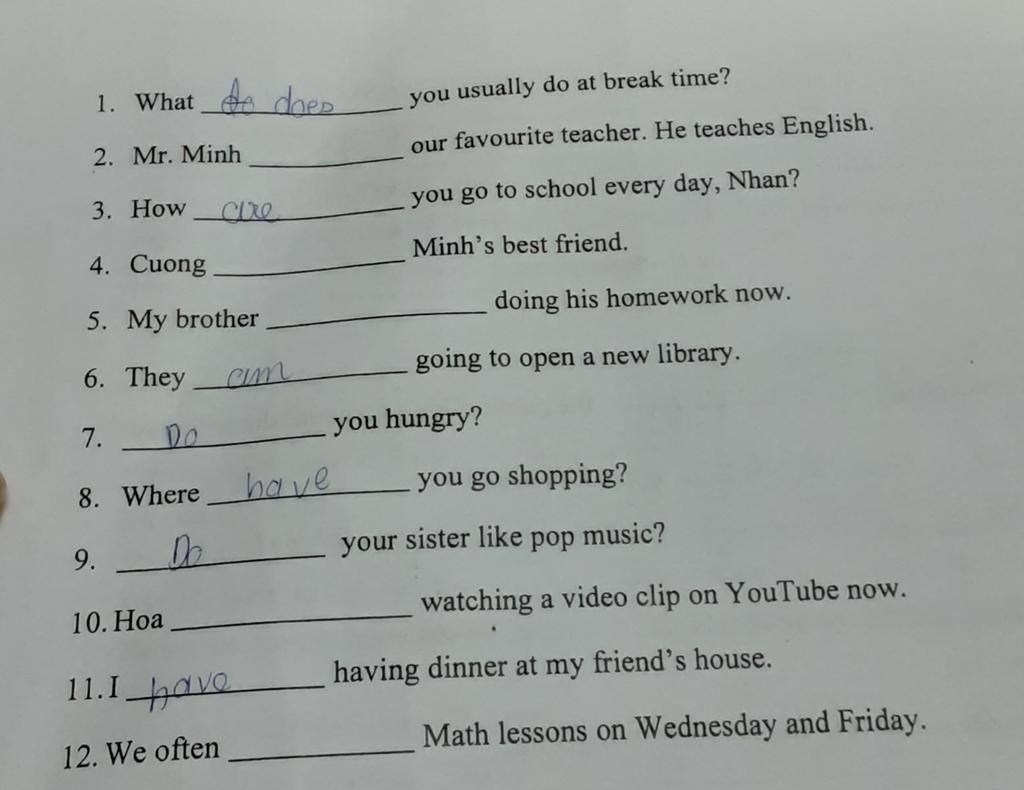 1. What do does you usually do at break time?
2. Mr. Minh __________ our favourite teacher. He teaches English.
3. How are you go to school every day, Nhan?
4. Cuong __________ Minh's best friend.
5. My brother __________ doing his homework now.
6. They am going to open a new library.
7. Do you hungry?
8. Where have you go shopping?
9. Do your sister like pop music?
10. Hoa __________ watching a video clip on YouTube now.
11. I have having dinner at my friend's house.
12. We often __________ Math lessons on Wednesday and Friday.